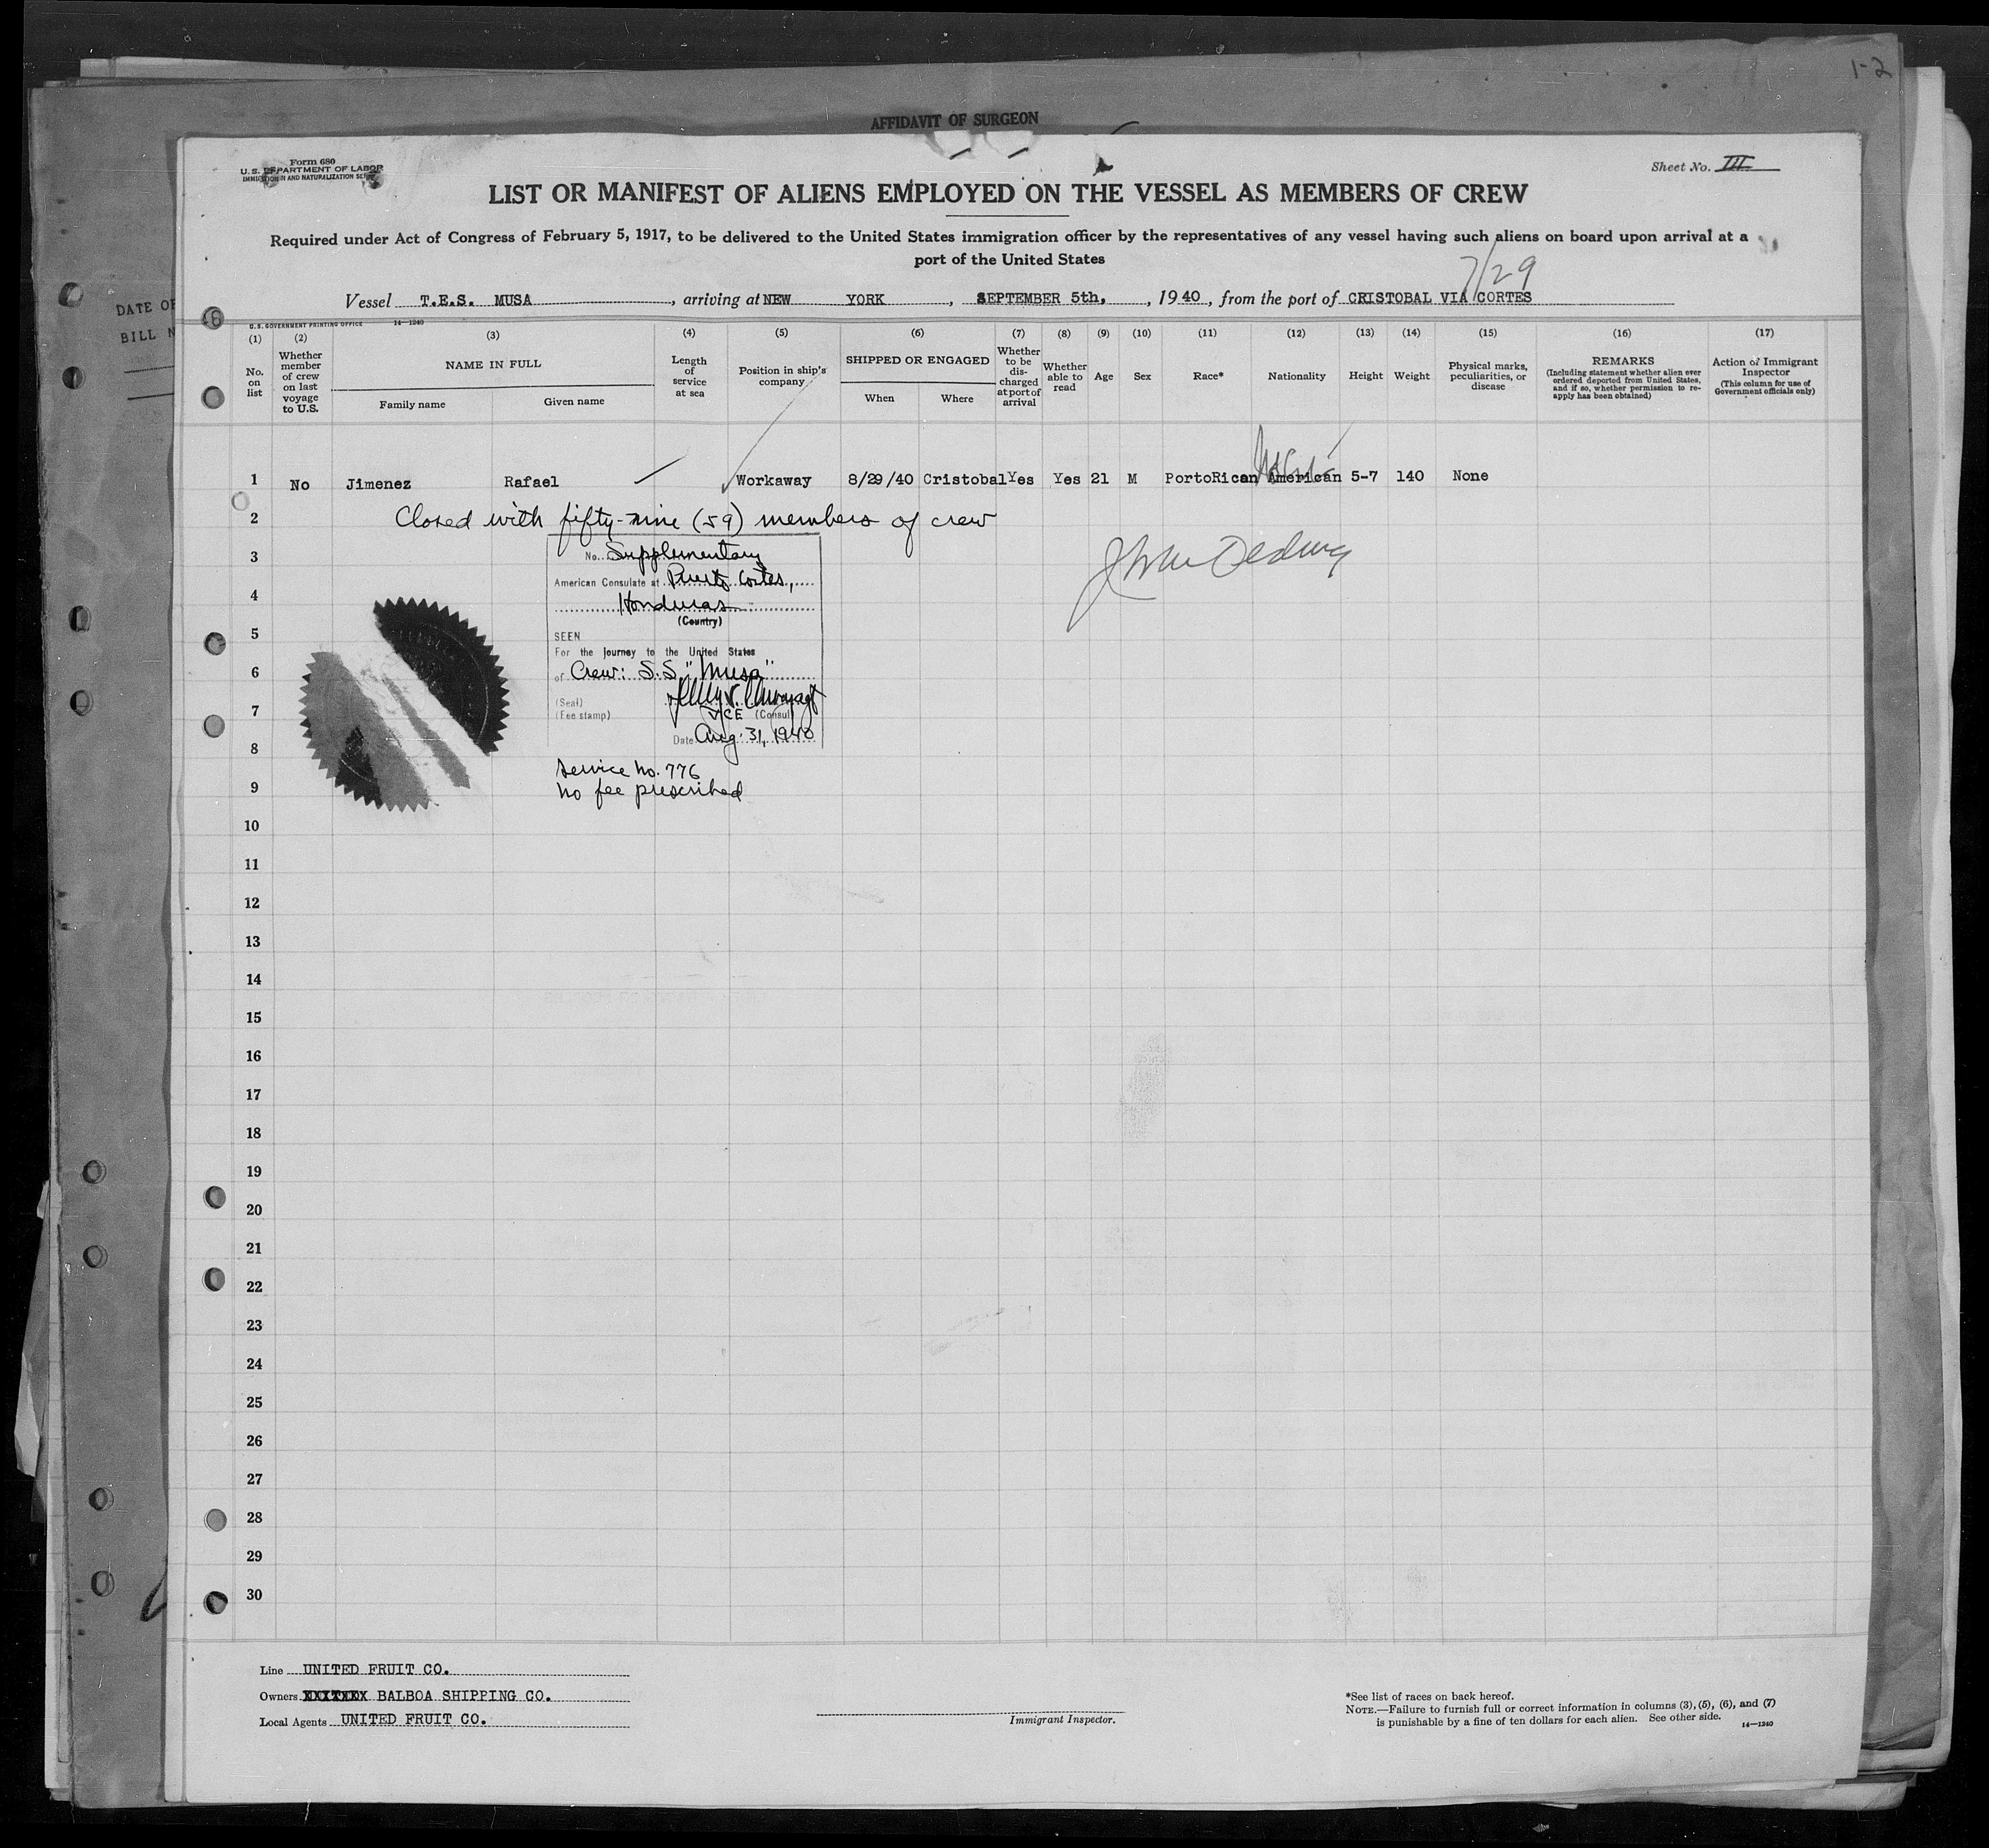 1-2
AFFIDAVIT OF SURGEON
DATE OF
BILL N
Form 680
U. S. DEPARTMENT OF LABOR
IMMIGRATION AND NATURALIZATION SERVICE
Sheet No. III
LIST OR MANIFEST OF ALIENS EMPLOYED ON THE VESSEL AS MEMBERS OF CREW
Required under Act of Congress of February 5, 1917, to be delivered to the United States immigration officer by the representatives of any vessel having such aliens on board upon arrival at a
port of the United States
7/29
Vessel T.E.S. MUSA, arriving at NEW YORK, SEPTEMBER 5th, 1940, from the port of CRISTOBAL VIA CORTES
U. S. GOVERNMENT PRINTING OFFICE 14—1240
(1) No. on list
(2) Whether member of crew on last voyage to U.S.
(3) NAME IN FULL
Family name Given name
(4) Length of service at sea
(5) Position in ship's company
(6) SHIPPED OR ENGAGED
When Where
(7) Whether to be discharged at port of arrival
(8) Whether able to read
(9) Age
(10) Sex
(11) Race*
(12) Nationality
(13) Height
(14) Weight
(15) Physical marks, peculiarities, or disease
(16) REMARKS
(Including statement whether alien ever ordered deported from United States, and if so, whether permission to reapply has been obtained)
(17) Action of Immigrant Inspector
(This column for use of Government officials only)
1 No Jimenez Rafael Workaway 8/29/40 Cristobal Yes Yes 21 M PortoRican American 5-7 140 None
2 Closed with fifty-nine (59) members of crew
3
No. Supplementary
American Consulate at Puerto Cortes,
4
Honduras
(Country)
5
SEEN
For the Journey to the United States
6
of Crew: S.S. "Musa"
7
(Seal)
(Fee stamp)
VICE (Consul)
8
Date Aug. 31, 1940
Service No. 776
9
No fee prescribed
10
11
12
13
14
15
16
17
18
19
20
21
22
23
24
25
26
27
28
29
30
Line UNITED FRUIT CO.
Owners BALBOA SHIPPING CO.
Local Agents UNITED FRUIT CO.
Immigrant Inspector.
*See list of races on back hereof.
NOTE.—Failure to furnish full or correct information in columns (3), (5), (6), and (7)
is punishable by a fine of ten dollars for each alien. See other side.
14—1240